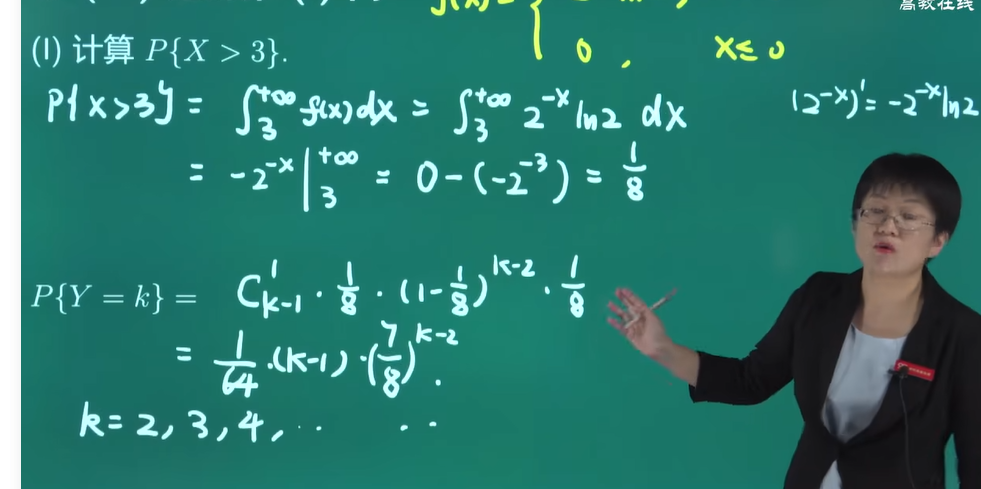 高教在线
f(x)=
0, x≤0
(1) 计算 P{X > 3}.
P{X>3}=∫₃^{+∞} f(x)dx = ∫₃^{+∞} 2^{-x} ln2 dx
(2^{-x})'=-2^{-x}ln2
= -2^{-x}|₃^{+∞} = 0-(-2^{-3}) = 1/8
P{Y = k} = C_{k-1}^{1} · 1/8 · (1-1/8)^{k-2} · 1/8
= 1/64 ·(k-1)·(7/8)^{k-2}.
k=2,3,4,·· ··